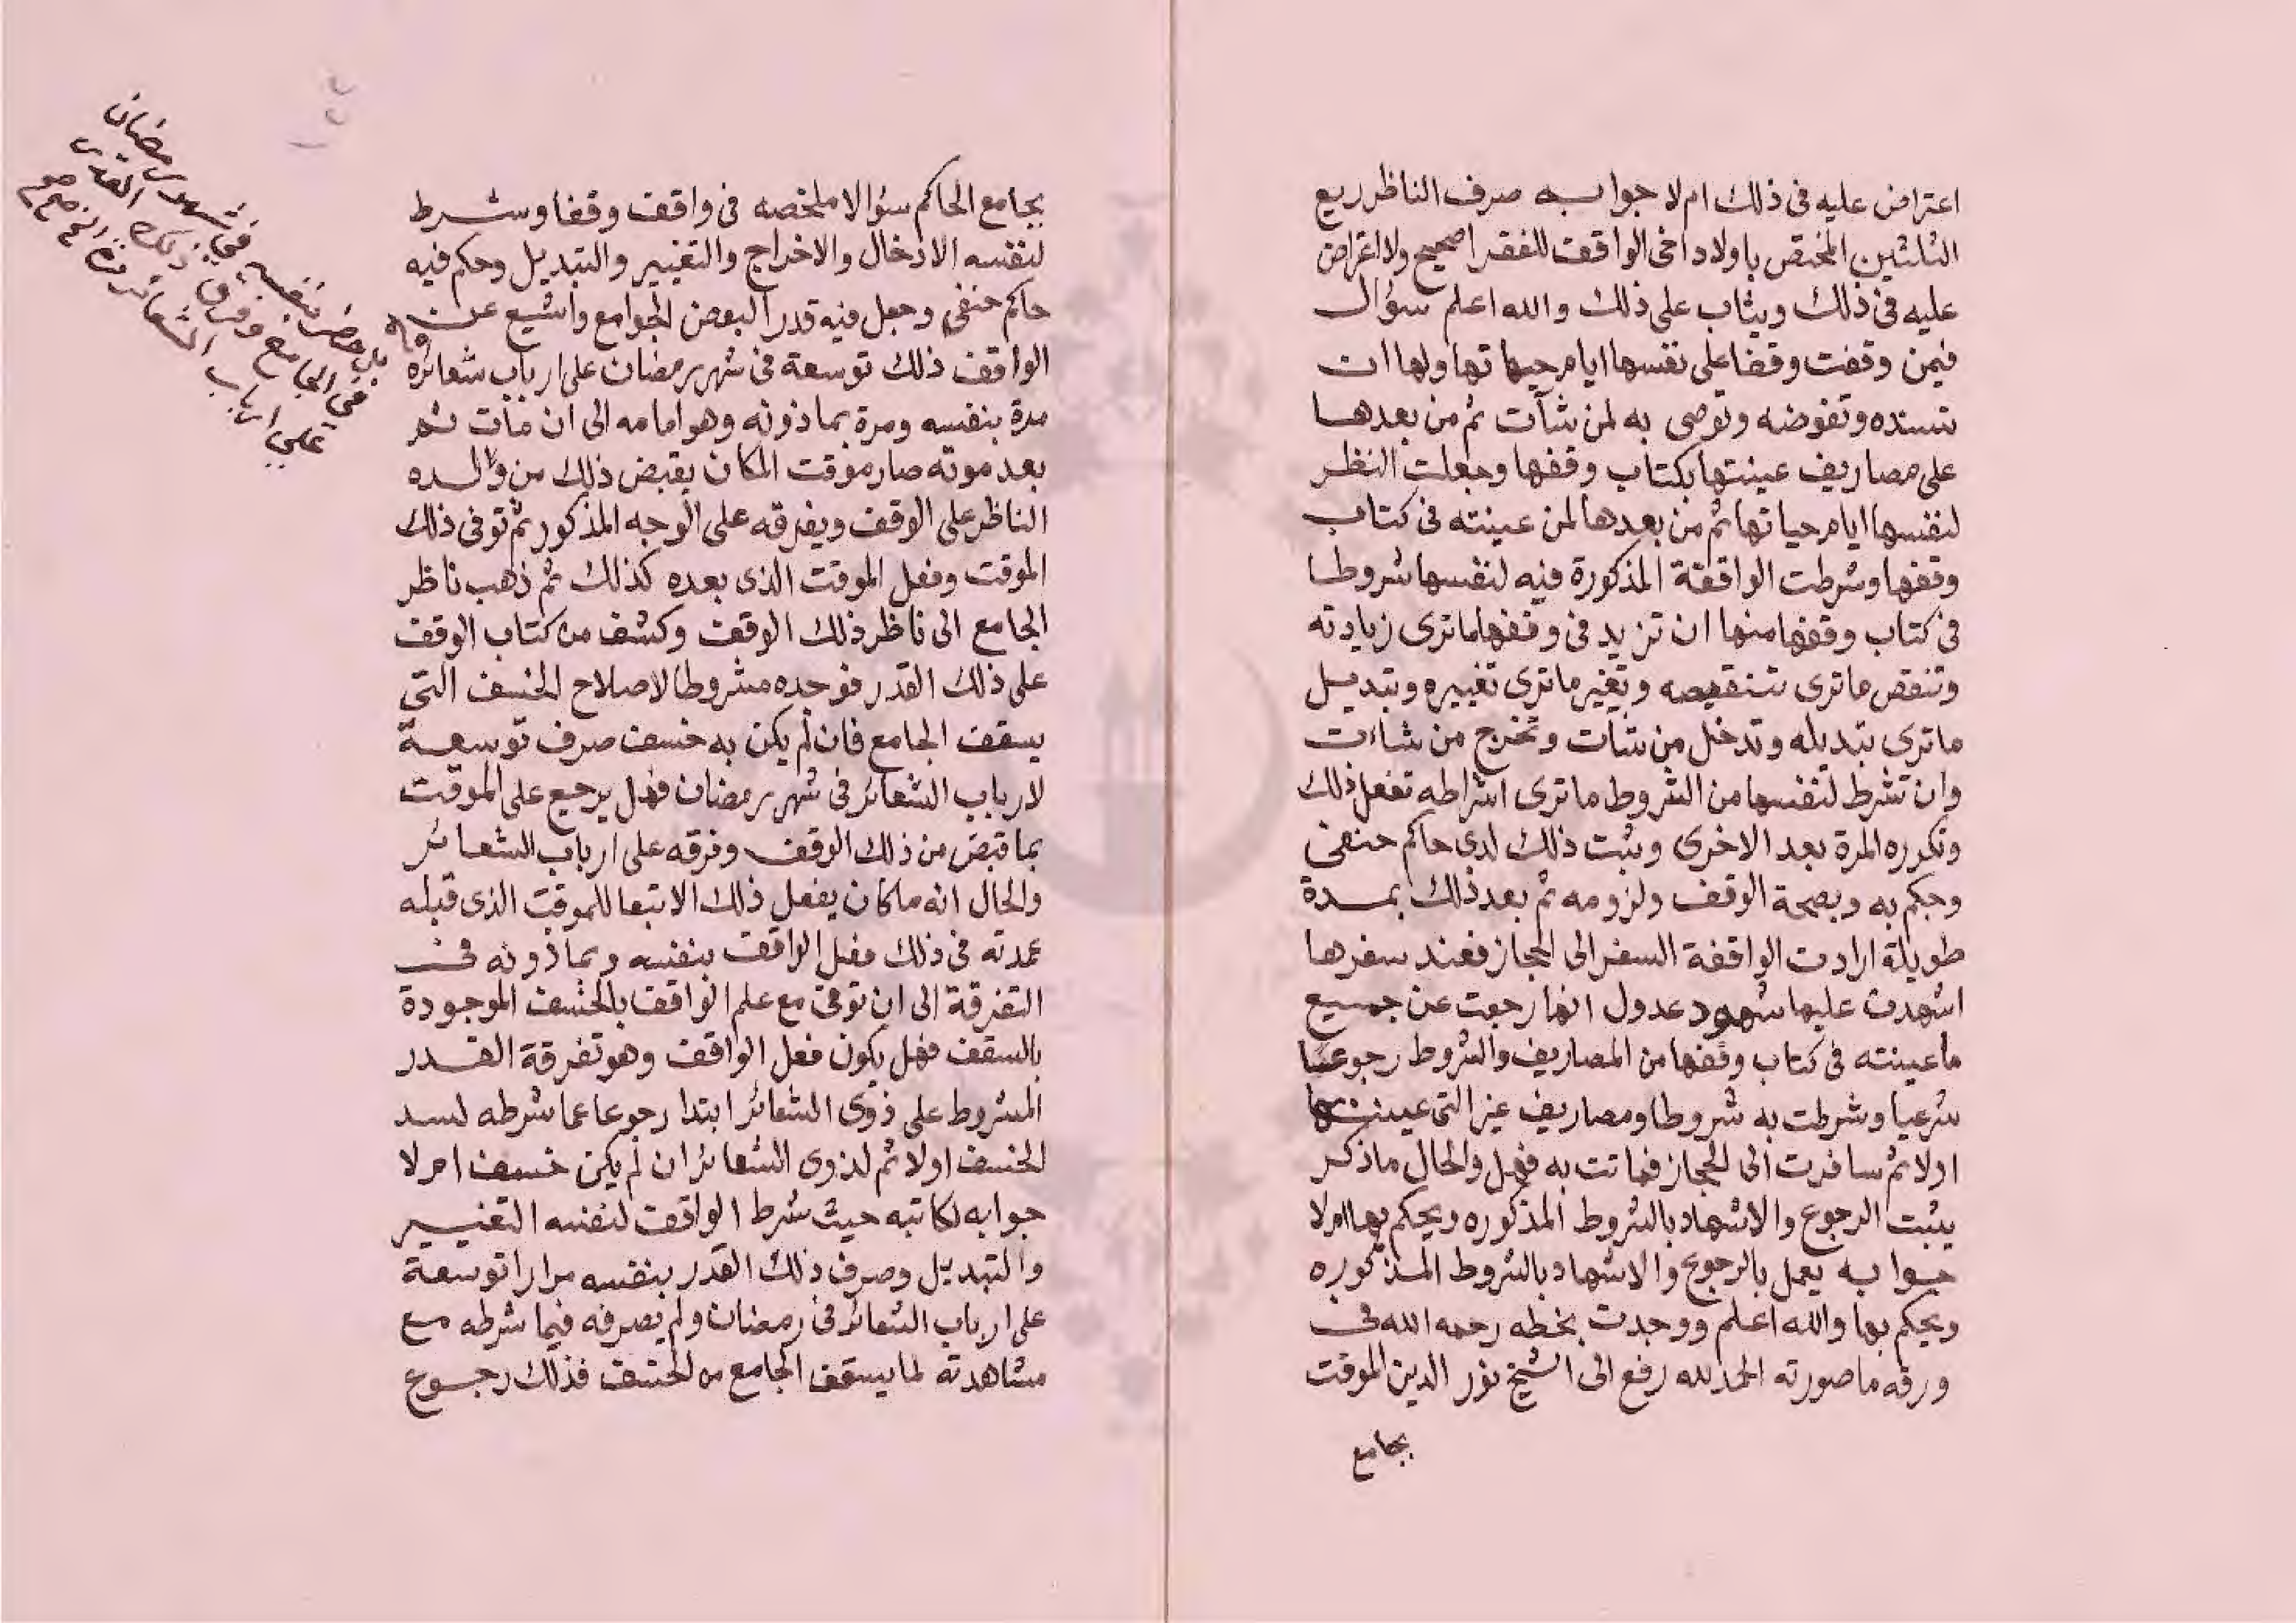 اعتراض عليه فى ذلك ام لا جوابه صرف الناظر ريع
الثلثين المختص باولاد اخى الواقف للفقرا صحيح ولا اعتراض
عليه فى ذلك ويثاب على ذلك والله اعلم سؤال
فيمن وقفت وقفا على نفسها ايام حياتها ولها ان
تسنده وتفوضه وتوصى به لمن شآت ثم من بعدها
على مصاريف عينتها بكتاب وقفها وجعلت النظر
لنفسها ايام حياتها ثم من بعدها لمن عينته فى كتاب
وقفها وشرطت الواقفة المذكورة فيه لنفسها شروطا
فى كتاب وقفها منها ان تزيد فى وقفها ما ترى زيادته
وتنقص ما ترى تنقيصه وتغير ما ترى تغييره وتبديل
ما ترى تبديله وتدخل من شآت وتخرج من شاءت
وان تشرط لنفسها من الشروط ما ترى اشراطه تفعل ذلك
وتكرره المرة بعد الاخرى وثبت ذلك لدى حاكم حنفى
وحكم به وبصحة الوقف ولزومه ثم بعد ذلك بمدة
طويلة ارادت الواقفة السفر الى الحجاز فعند سفرها
اشهدت عليها شهود عدول انها رجعت عن جميع
ما عينته فى كتاب وقفها من المصاريف والشروط رجوعا
شرعيا وشرطت به شروطا ومصاريف غير التى عينتها
اولا ثم سافرت الى الحجاز فماتت به فهل والحال ما ذكر
يثبت الرجوع والاشهاد بالشروط المذكوره ويحكم بها ام لا
جوابه يعمل بالرجوع والاشهاد بالشروط المذكوره
ويحكم بها والله اعلم ووجدت بخطه رحمه الله فى
ورقه ما صورته الحمد لله رفع الى الشيخ نور الدين الموقت
بجامع
بجامع الحاكم سؤالا ملخصه فى واقف وقفا وشرط
لنفسه الادخال والاخراج والتغيير والتبديل وحكم فيه
حاكم حنفى وجعل فيه قدرا لبعض الجوامع واشيع عن
الواقف ذلك توسعة فى شهر رمضان على ارباب شعائره
مدة بنفسه ومرة بماذونه وهو امامه الى ان مات ثم
بعد موته صار موقت المكان يقبض ذلك من والده
الناظر على الوقف ويفرقه على الوجه المذكور ثم توفى ذلك
الموقت وفعل الموقت الذى بعده كذلك ثم ذهب ناظر
الجامع الى ناظر ذلك الوقف وكشف من كتاب الوقف
على ذلك القدر فوجده مشروطا لاصلاح الخسف التى
بسقف الجامع فان لم يكن به خسف صرف توسعة
لارباب الشعائر فى شهر رمضان فهل يرجع على الموقت
بما قبض من ذلك الوقف وفرقه على ارباب الشعائر
والحال انه ما كان يفعل ذلك الا تبعا للموقت الذى قبله
عمدته فى ذلك فعل الواقف بنفسه وبماذونه فى
التفرقة الى ان توفى مع علم الواقف بالخسف الموجودة
بالسقف فهل يكون فعل الواقف وهو تفرقة القدر
المشروط على ذوى الشعائر ابتدا رجوعا عما شرطه لسد
الخسف اولا ثم لذوى الشعائر ان لم يكن خسف ام لا
جوابه لكاتبه حيث شرط الواقف لنفسه التغيير
والتبديل وصرف ذلك القدر بنفسه مرارا توسعة
على ارباب الشعائر فى رمضان ولم يصرفه فيما شرطه مع
مشاهدته لما بسقف الجامع من الخسف فذلك رجوع
بنفسه فى شهر رمضان
فى الجامع وفرق ذلك القدر
على ارباب الشعائر